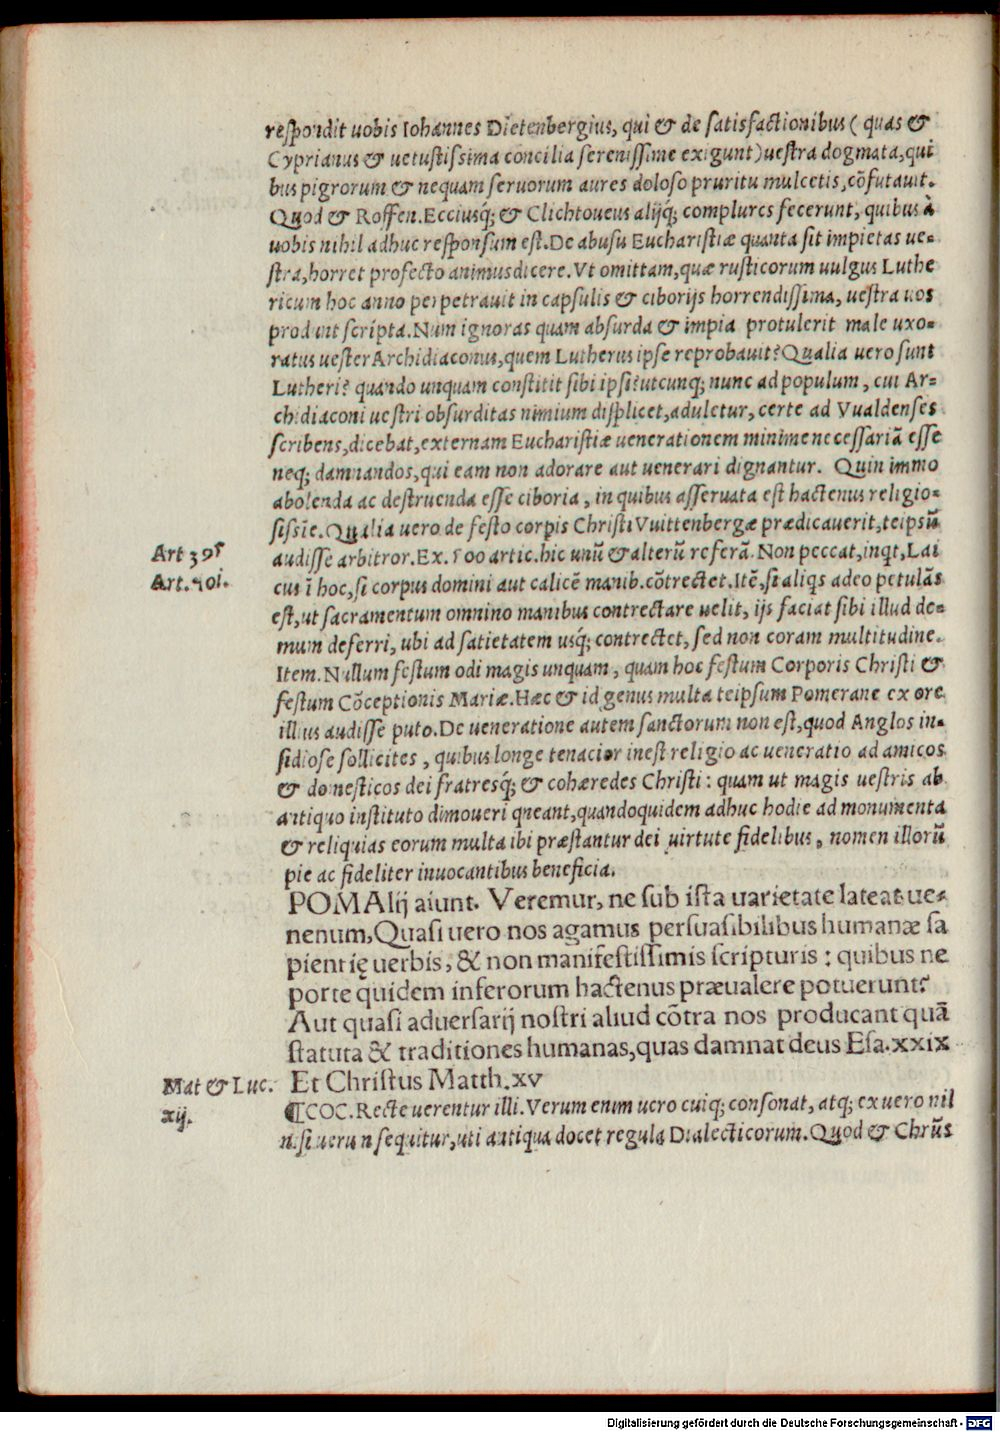 respondit uobis Iohannes Dietenbergius, qui & de satisfactionibus ( quas &
Cyprianus & uetustissima concilia serenissime exigunt) uestra dogmata, qui
bus pigrorum & nequam seruorum aures doloso pruritu mulcetis, cõfutauit.
Quod & Roffen. Ecciusq́; & Clichtoueus alijq́; complures fecerunt, quibus à
uobis nihil adhuc responsum est. De abusu Eucharistiæ quanta sit impietas ue-
stra, horret profecto animus dicere. Vt omittam, quæ rusticorum uulgus Luthe
ricum hoc anno perpetrauit in capsulis & ciborijs horrendissima, uestra uos
produnt scripta. Num ignoras quam absurda & impia protulerit male uxo-
ratus uester Archidiaconus, quem Lutherus ipse reprobauit? Qualia uero sunt
Lutheri? quando unquam constitit sibi ipsi? utcunq; nunc ad populum, cui Ar-
chidiaconi uestri obsurditas nimium displicet, aduletur, certe ad Vualdenses
scribens, dicebat, externam Eucharistiæ uenerationem minime necessariã esse
neq; damnandos, qui eam non adorare aut uenerari dignantur. Quin immo
abolenda ac destruenda esse ciboria, in quibus asseruata est hactenus religio-
sissie. Qualia uero de festo corpis Christi Vuittenbergæ prædicauerit, teipsũ
Art 395
audisse arbitror. Ex. 500 artic. hic unũ & alterũ referã. Non peccat, inqt, Lai
Art. 501.
cus ĩ hoc, si corpus domini aut calicẽ manib. cõtrectet. Itẽ, si aliqs adeo petulãs
est, ut sacramentum omnino manibus contrectare uelit, ijs faciat sibi illud do-
mum deferri, ubi ad satietatem usq́; contrectet, sed non coram multitudine.
Item. Nullum festum odi magis unquam, quam hoc festum Corporis Christi &
festum Cõceptionis Mariæ. Hæc & id genus multa teipsum Pomerane ex ore
illius audisse puto. De ueneratione autem sanctorum non est, quod Anglos in-
sidiose sollicites, quibus longe tenacior inest religio ac ueneratio ad amicos
& domesticos dei fratresq́; & cohæredes Christi: quam ut magis uestris ab
antiquo instituto dimoueri queant, quandoquidem adhuc hodie ad monumenta
& reliquias eorum multa ibi præstantur dei uirtute fidelibus, nomen illorũ
pie ac fideliter inuocantibus beneficia.
POM Alij aiunt. Veremur, ne sub ista uarietate lateat ue-
nenum, Quasi uero nos agamus persuasibilibus humanæ sa
pientię uerbis, & non manifestissimis scripturis: quibus ne
porte quidem inferorum hactenus præualere potuerunt?
Aut quasi aduersarij nostri aliud cõtra nos producant quã
statuta & traditiones humanas, quas damnat deus Esa. xxix
Mat & Luc.
Et Christus Matth. xv
xij.
¶COC. Recte uerentur illi. Verum enim uero cuiq; consonat, atq; ex uero nil
nisi uerum sequitur, uti antiqua docet regula Dialecticorum. Quod & Chrũs
Digitalisierung gefördert durch die Deutsche Forschungsgemeinschaft - DFG